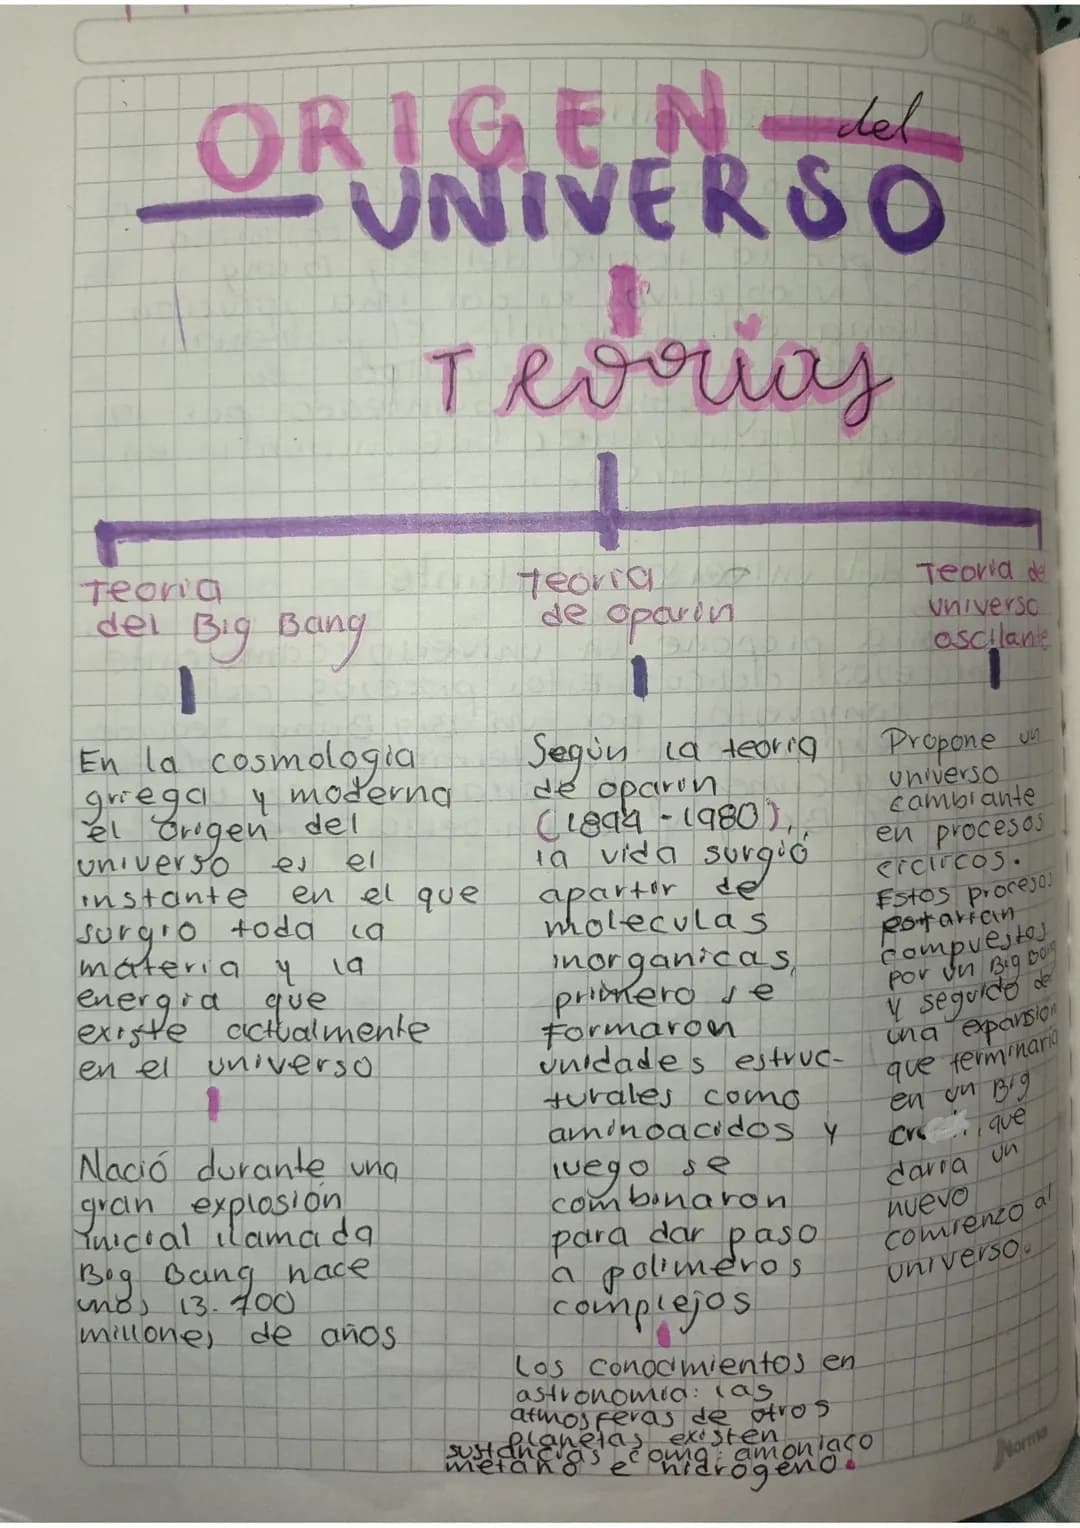 ORIGEN del
UNIVERSO
Teorias
Teoria
del Big Bang
En la cosmologia
griega y moderna
el origen del
universo es el
instante en el que
surgio toda la
materia y la
energia que
existe actualmente
en el universo
Nació durante una
gran explosión
inicial llamada
Big Bang hace
unos 13.700
millones de años
Teoria
de oparin
Según la teoria
de oparin
(1894-1980),
la vida surgió
apartir de
moleculas
inorganicas,
primero se
formaron
unidades estruc-
turales como
aminoacidos y
luego se
combinaron
para dar paso
a polimeros
complejos
Los conocimientos en
astronomia: las
atmosferas de otros
planetas existen
sustancias como: amoniaco
metano e hidrogeno.
Teoria de
universo
oscilante
Propone un
universo
cambiante
en procesos
ciclicos.
Estos procesos
estarian
compuestos
por un Big bang
y seguido de
una expansion
que terminaria
en un Big
que
daria un
nuevo
comienzo al
universo.
Norma